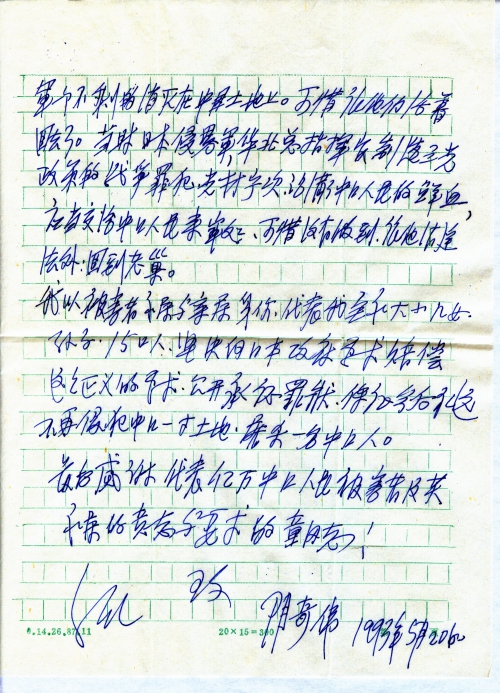 军个不剩的消灭在中国土地上。可惜让他们活着
回去了。当时日本侵略军华北总指挥发动三光
政策的战争罪犯岗村宁次，沾满中国人民的鲜血，
应当交给中国人民来审处，可惜没有做到，让他逍遥
法外，回到老巢。
我以被害者亲属身份，代表我全家大小儿女
孙子15口人，坚决向日本政府要求赔偿
这个正义的要求，公开承认罪状，保证今后永远
不再侵犯中国一寸土地，屠杀一名中国人。
最后感谢代表亿万中国人民被害者及其
家属的意志与要求的童同志！
此 致
阴奇伟 1993年5月20日
4.14.26.87.11 20×15=300